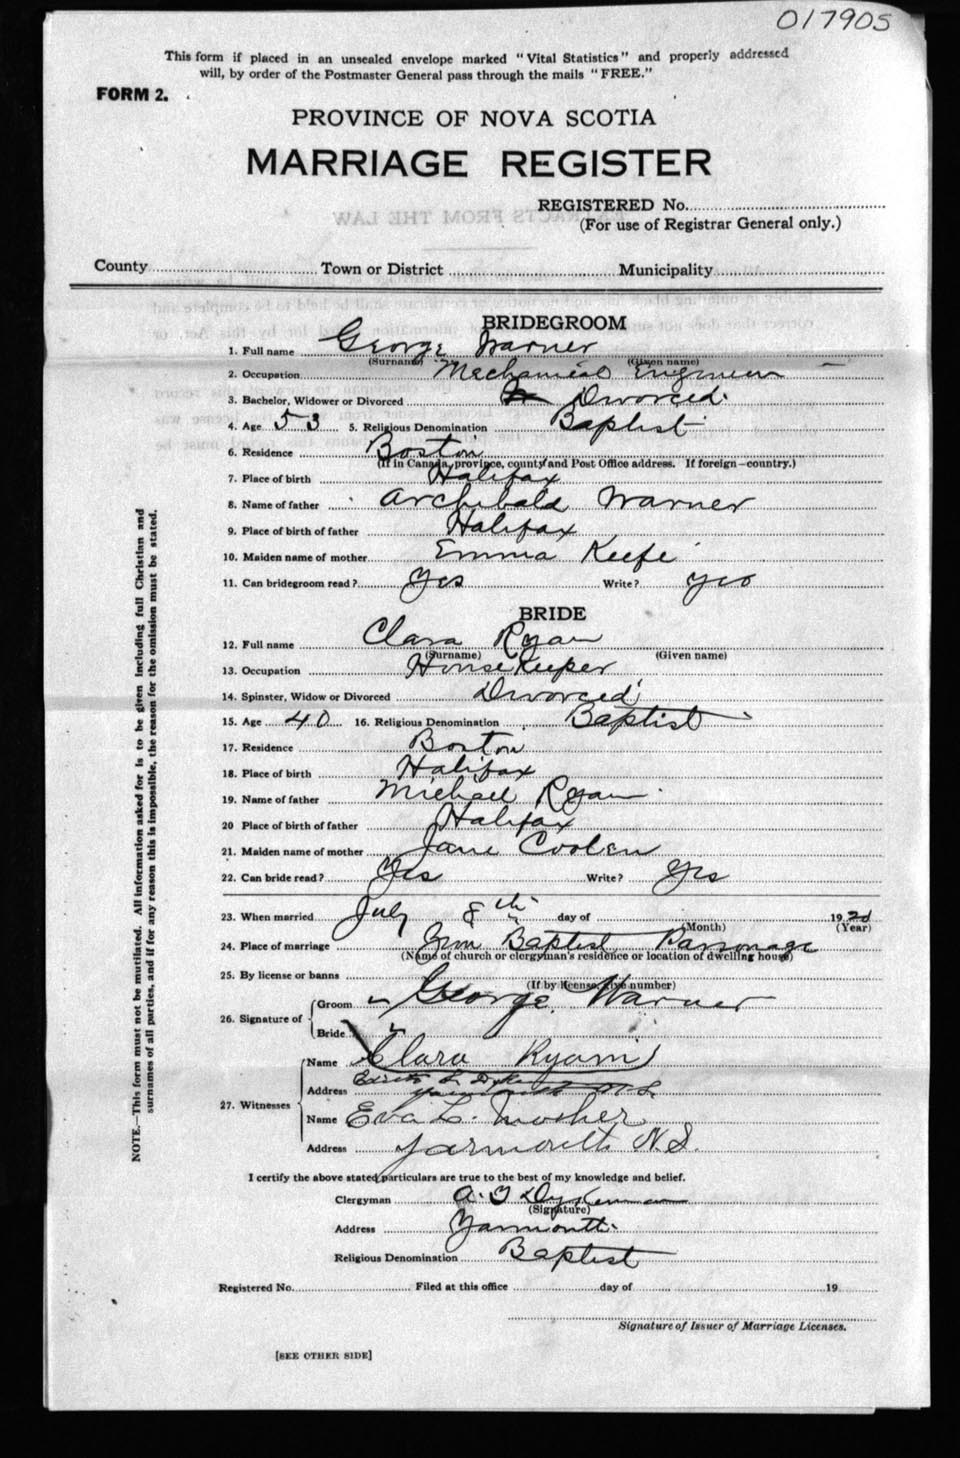 017905
This form if placed in an unsealed envelope marked "Vital Statistics" and properly addressed
will, by order of the Postmaster General pass through the mails "FREE."
FORM 2.
PROVINCE OF NOVA SCOTIA
MARRIAGE REGISTER
REGISTERED No.
(For use of Registrar General only.)
County Town or District Municipality
BRIDEGROOM
1. Full name George Warner
(Surname) (Given name)
2. Occupation Mechanical Engineer
3. Bachelor, Widower or Divorced Divorced
4. Age 53 5. Religious Denomination Baptist
6. Residence Boston
(If in Canada, province, county and Post Office address. If foreign—country.)
7. Place of birth Halifax
8. Name of father Archibald Warner
9. Place of birth of father Halifax
10. Maiden name of mother Emma Keefe
11. Can bridegroom read? Yes Write? Yes
BRIDE
12. Full name Clara Ryan
(Surname) (Given name)
13. Occupation House Keeper
14. Spinster, Widow or Divorced Divorced
15. Age 40 16. Religious Denomination Baptist
17. Residence Boston
18. Place of birth Halifax
19. Name of father Michael Ryan
20 Place of birth of father Halifax
21. Maiden name of mother Jane Coolen
22. Can bride read? Yes Write? Yes
23. When married July 8th day of 19
(Month) (Year)
24. Place of marriage Baptist Parsonage
(Name of church or clergyman's residence or location of dwelling house)
25. By license or banns
(If by license, give number)
26. Signature of
Groom George Warner
Bride
27. Witnesses
Name Clara Ryan
Address Yarmouth N.S.
Name Eva L. Mosher
Address Yarmouth N.S.
I certify the above stated particulars are true to the best of my knowledge and belief.
Clergyman
(Signature)
Address Yarmouth
Religious Denomination Baptist
Registered No. Filed at this office day of 19
Signature of Issuer of Marriage Licenses.
[SEE OTHER SIDE]
NOTE.—This form must not be mutilated. All information asked for is to be given including full Christian and
surnames of all parties, and if for any reason this is impossible, the reason for the omission must be stated.